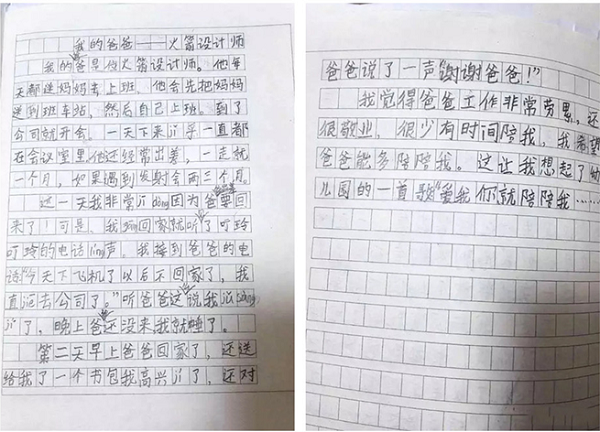 我的爸爸——火箭设计师
我的爸是位火箭设计师。他每
天都送妈妈去上班。他会先把妈妈
送到班车站，然后自己上班。到了
公司就开会。一天下来jǐ乎一直都
在会议室里他还经常出差，一走就
一个月，如果遇到发射会两三个月。
这一天我非常jī dòng因为爸要回
来了！可是，我回家就听了叮玲
叮玲的电话líng声。我接到爸爸的电
话“今天下飞机了以后不回家了，我
直应去公司了。”听爸爸这说我
jí了，晚上爸还没来我就睡了。
第二天早上爸爸回家了，还送
给我了一个书包我高兴jí了，还对
爸爸说了一声“谢谢爸爸！”
我觉得爸爸工作非常劳累，还
很敬业，很少有时间陪我，我希望
爸爸能多陪陪我。这让我想起了幼
儿园的一首歌“爱我你就陪陪我……